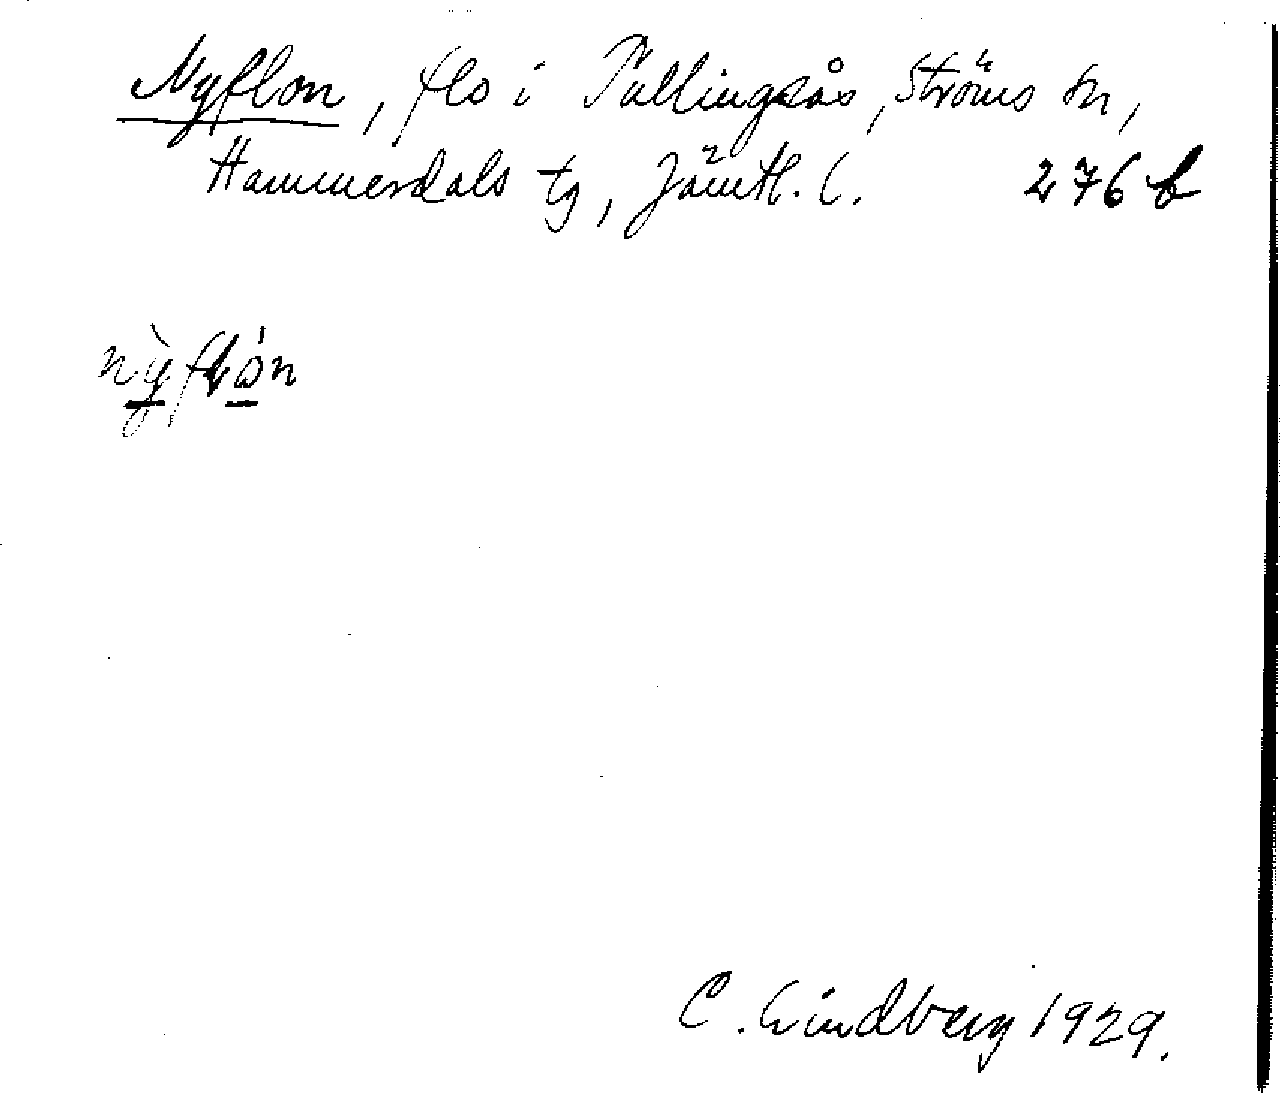 Nyflon, flo i Tullingsås, Ströms sn,
Hammerdals tg, Jämtl. l. 276 b
nỳflón
C. Lindberg 1929.